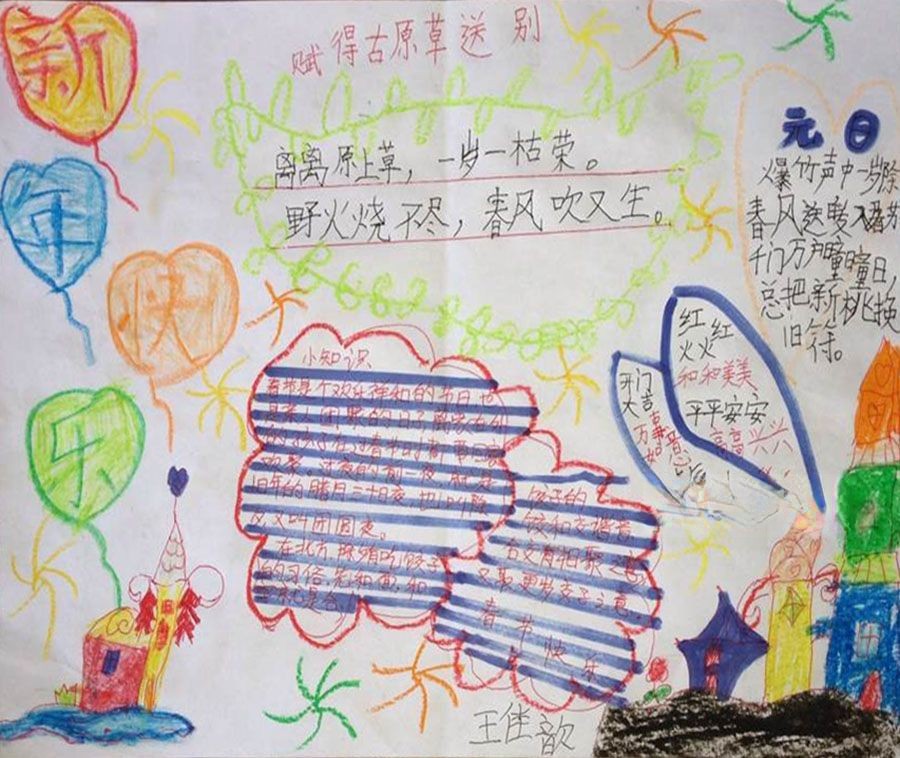 新
年
快
乐
赋得古原草送别
离离原上草，一岁一枯荣。
野火烧不尽，春风吹又生。
元日
爆竹声中一岁除
春风送暖入
千门万户曈曈日，
总把新桃换
旧符。
红红
火火
和和美美
平平安安
高高兴兴
开门
大吉
万事
如意
小知识
春节是个欢乐祥和的节日也
是亲人团聚的日子离家在外
过春节时
旧年的腊月三十日夜，也叫除
夕又叫团圆夜
在北方
的习俗
饺子的
饺和交谐音
合又有相聚之意
又取更岁交子之意
春节快乐
王佳歆